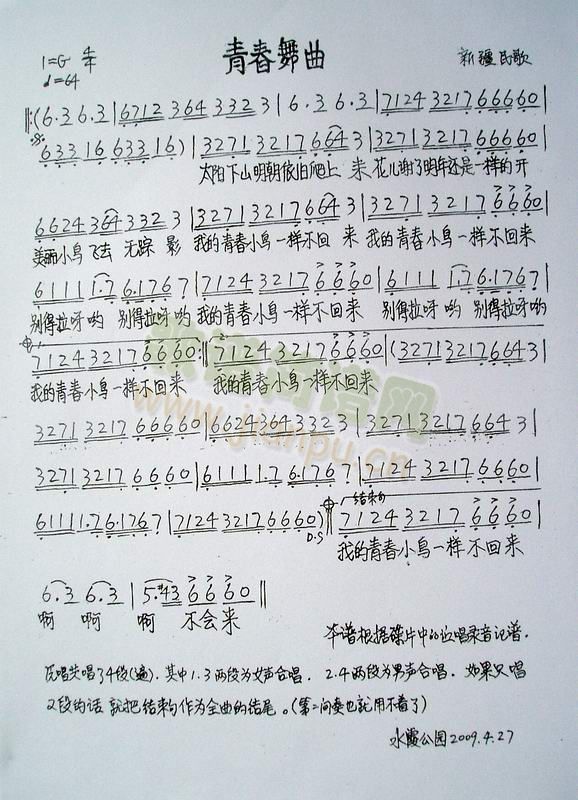 青春舞曲
1=G 4/4
♩=64
新疆民歌
‖:(6.3 6.3|6712 364 332 3|6.3 6.3|7124 3217 66660|
633 16 633 16)|3271 3217 664 3|3271 3217 66660|
太阳下山明朝依旧爬上 来 花儿谢了明年还是一样的开
6624 364 332 3|3271 3217 664 3|3271 3217 6660|
美丽小鸟飞去 无踪 影 我的青春小鸟一样不回 来 我的青春小鸟一样不回来
61111 1.7 6.176 7|7124 3217 6660|61111 1.7 6.176 7|
别得拉呀哟 别得拉呀哟 我的青春小鸟一样不回来 别得拉呀哟 别得拉呀哟
7124 3217 6660:‖7124 3217 6660|(3271 3217 664 3|
我的青春小鸟一样不回来 我的青春小鸟一样不回来
3271 3217 66660|6624 364 332 3|3271 3217 664 3|
3271 3217 6660|61111 1.7 6.176 7|7124 3217 66660|
61111 1.7 6.176 7|7124 3217 6660)‖7124 3217 6660|
D.S 结束句
我的青春小鸟一样不回来
6.3 6.3|5.#43 6660‖
啊 啊 啊 不会来
本谱根据碟片中的演唱录音记谱.
演唱共唱了4段(遍).其中1.3两段为女声合唱. 2.4两段为男声合唱. 如果只唱
2段的话 就把结束句作为全曲的结尾。(第二间奏也就用不着了)
水霞公园2009.4.27
www.jianpu.cn